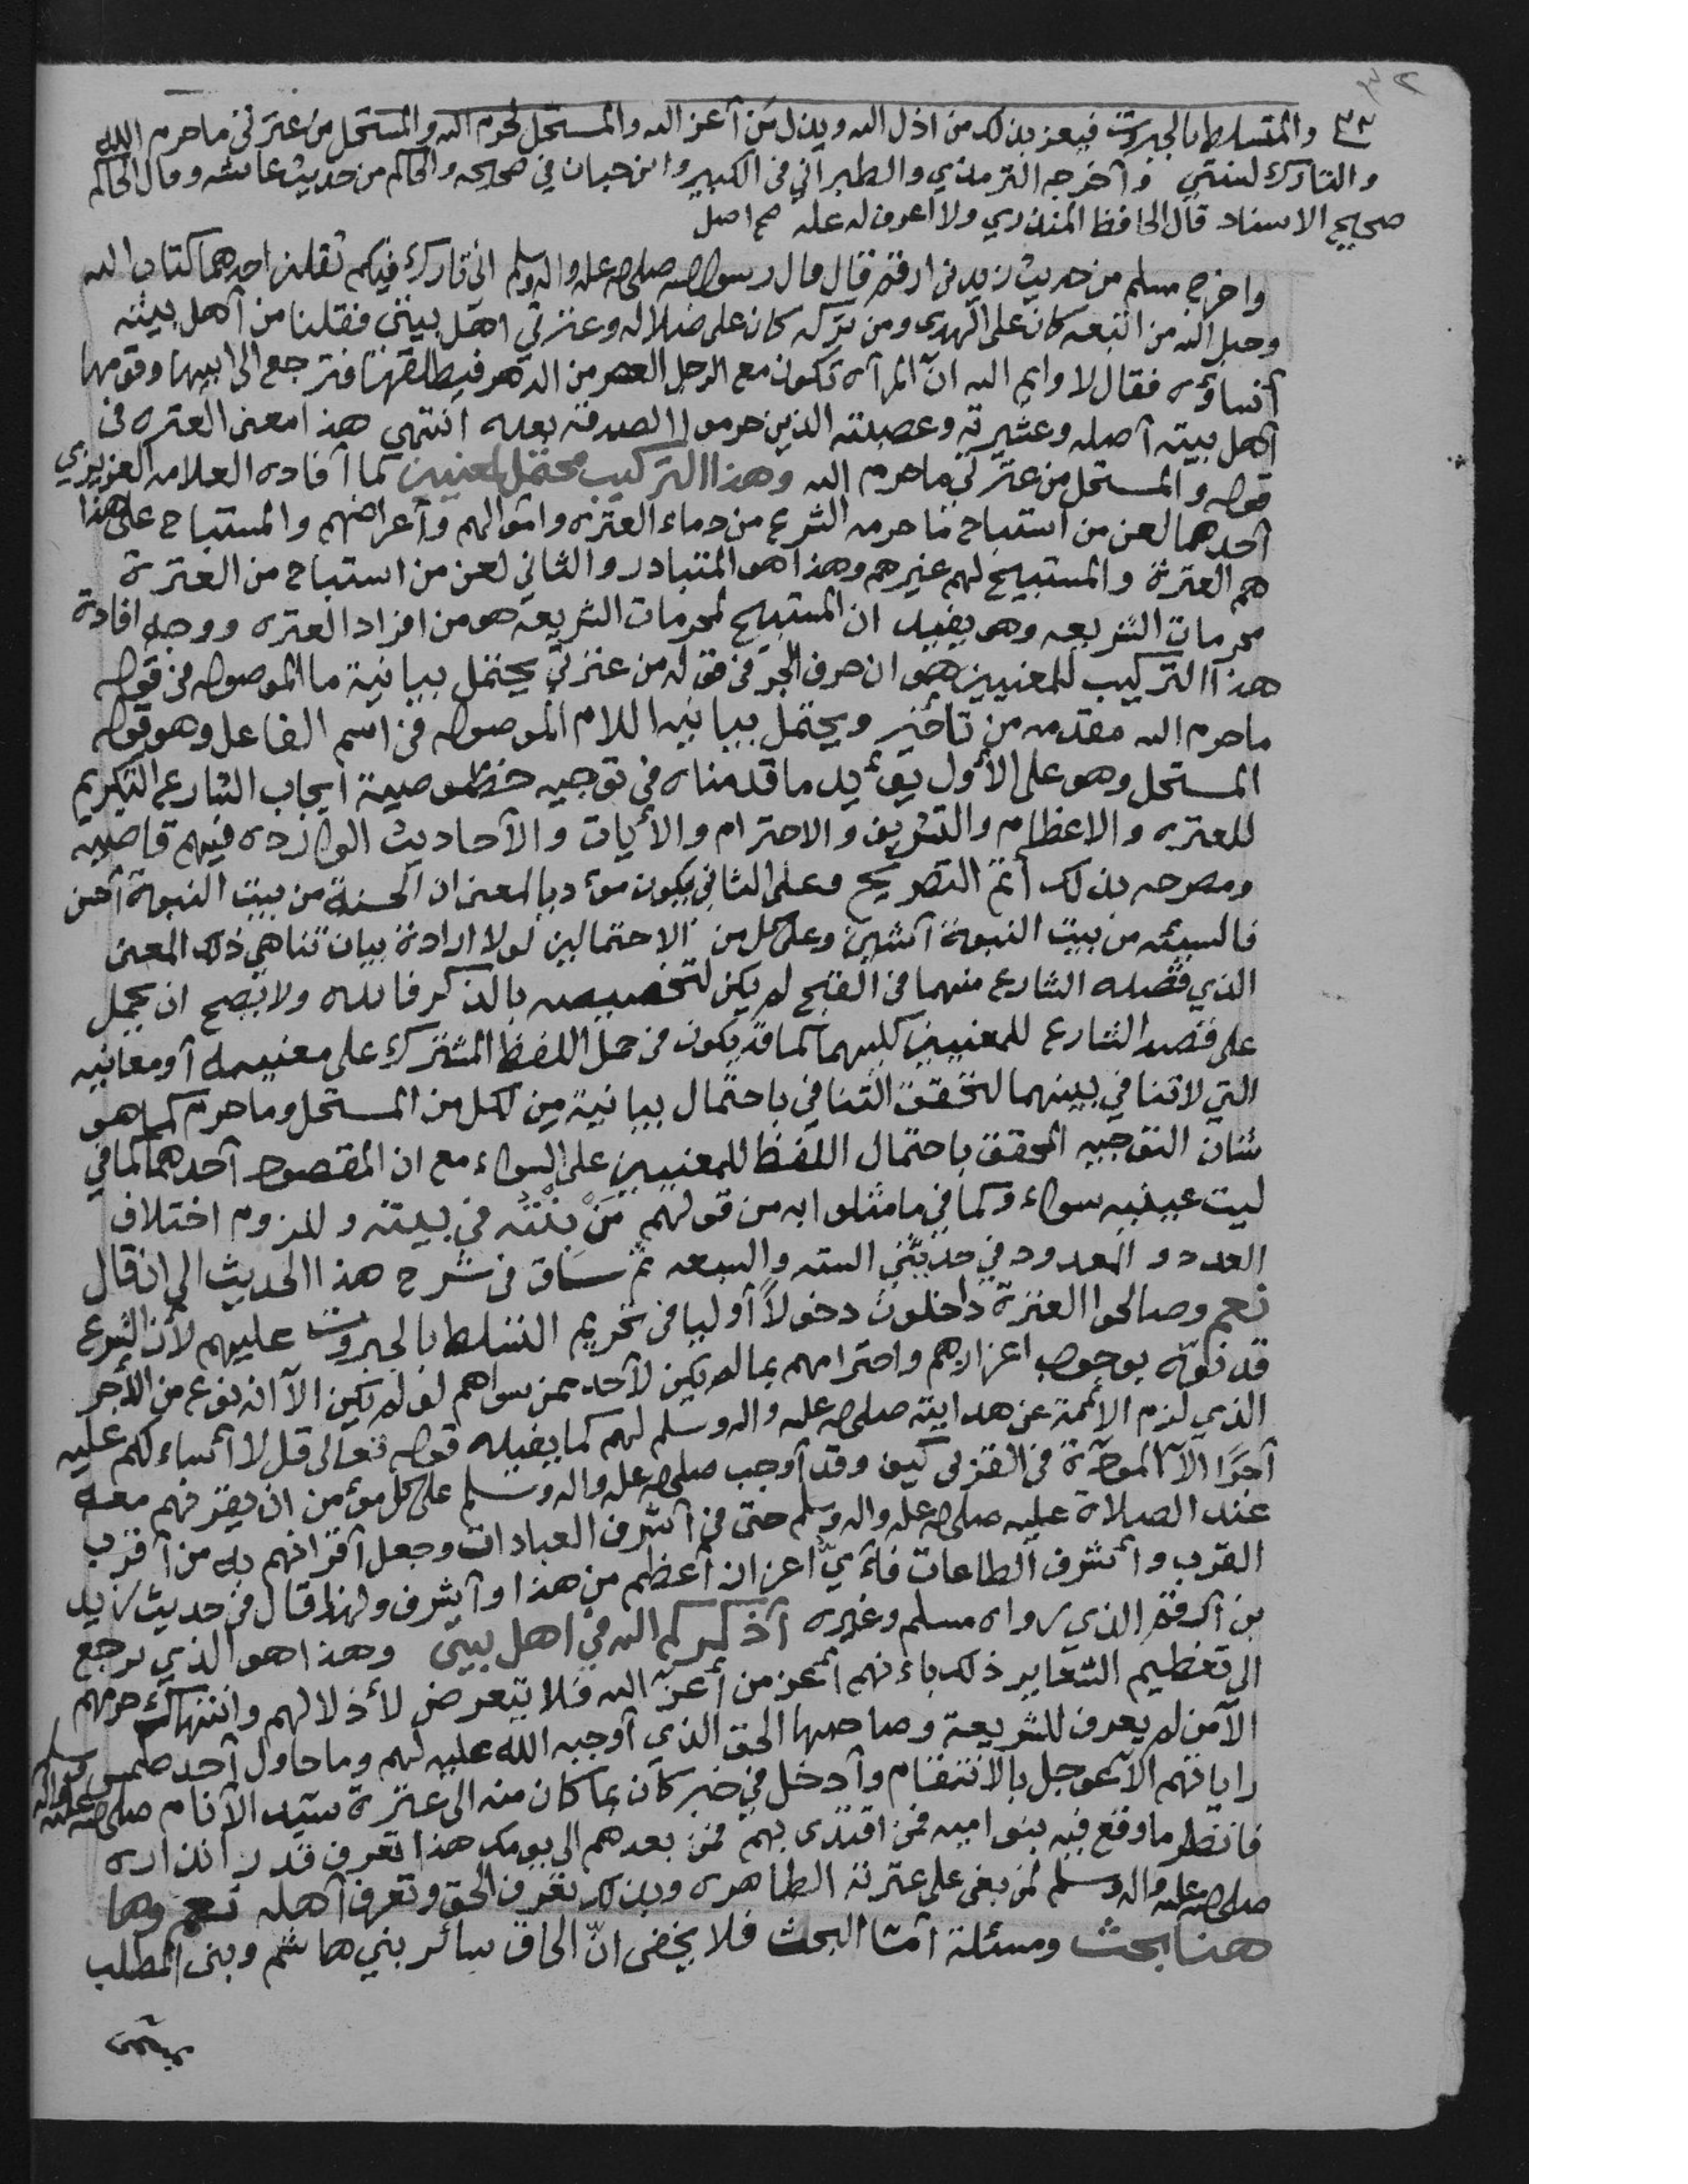 ٣٢
٣٣ والمتسلط بالجبروت فيعز بذلك من اذل الله ويذل من أعز الله والمستحل لحرم الله والمستحل من عترتي ما حرم الله
والتارك لسنتي وأخرجه الترمذي والطبراني في الكبير وابن حبان في صحيحه والحاكم من حديث عائشه وقال الحاكم
صحيح الاسناد قال الحافظ المنذري ولا اعرف له عله صح اصل
واخرج مسلم من حديث زيد بن ارقم قال قال رسول الله صلى الله عليه واله وسلم اني تارك فيكم ثقلين احدهما كتاب الله
وحبل الله من اتبعه كان على الهدى ومن تركه كان على ضلاله وعترتي اهل بيتي فقلنا من أهل بيته
أنساؤه فقال لا وايم الله ان المرأه تكون مع الرجل العصر من الدهر فيطلقها فترجع الى ابيها وقومها
أهل بيته أصله وعشيرته وعصبته الذين حرموا الصدقه بعده انتهى هذا معنى العتره في
قوله والمستحل من عترتي ما حرم الله وهذا التركيب محتمل لمعنيين كما أفاده العلامه العزيزي
أحدهما لعن من استباح ما حرمه الشرع من دماء العتره وأموالهم وأعراضهم والمستباح على هذا
هم العترة والمستبيح لهم غيرهم وهذا هو المتبادر والثاني لعن من استباح من العترة
محرمات الشريعه وهو يفيد ان المستبيح لمحرمات الشريعه هو من افراد العتره ووجه افادة
هذا التركيب للمعنيين هو ان حرف الجر في قوله من عترتي يحتمل بيانية ما الموصوله في قوله
ما حرم الله مقدمه من تأخير ويحتمل بيانيه اللام الموصوله في اسم الفاعل وهو قوله
المستحل وهو على الأول يؤيد ما قدمناه في توجيه خصوصية ايجاب الشارع التكريم
للعتره والاعظام والتشريف والاحترام والأيات والأحاديث الوارده فيهم قاضيه
ومصرحه بذلك أتم التصريح وعلى الثاني يكون مؤديا لمعنى ان الحسنة من بيت النبوة أحسن
فالسيئه من بيت النبوة أشين وعلى كل من الاحتمالين لولا ارادة بيان تناهي ذلك المعنى
الذي قصده الشارع منهما في القبح لم يكن لتخصيصه بالذكر فائده ولا يصح ان يحمل
على قصد الشارع للمعنيين كليهما كما قد يكون في حمل اللفظ المشترك على معنييه أو معانيه
التي لا تنافي بينهما لتحقق التنافي باحتمال بيانية من لكل من المستحل وما حرم كما هو
شان التوجيه المحقق باحتمال اللفظ للمعنيين على السواء مع ان المقصود أحدهما كما في
ليت عينيه سواء وكما في ما مثلوا به من قولهم مَنْ بِنْتُه في بيته وللزوم اختلاف
العدد والمعدود في حديثي السته والسبعه ثم ساق في شرح هذا الحديث الى ان قال
نعم وصالحوا العترة داخلون دخولاً أوليا في تحريم التسلط بالجبروت عليهم لأن الشرع
قد نوّه بوجوب اعزازهم واحترامهم بما لم يكن لأحد ممن سواهم لو لم يكن الا انه نوع من الأجر
الذي لزم الأئمة عن هدايته صلى الله عليه واله وسلم لهم كما يفيده قوله تعالى قل لا أسئلكم عليه
أجرًا الا المودة في القربى كيف وقد أوجب صلى الله عليه واله وسلم على كل مؤمن ان يقرنهم معه
عند الصلاة عليه صلى الله عليه واله وسلم حتى في أشرف العبادات وجعل أقرانهم به من أقرب
القرب وأشرف الطاعات فأيّ اعزاز أعظم من هذا وأشرف ولهذا قال في حديث زيد
بن أرقم الذي رواه مسلم وغيره أذكركم الله في اهل بيتي وهذا هو الذي يرجع
الى تعظيم الشعاير ذلك بأنهم أعز من أعزّ الله فلا يتعرض لأذلالهم وانتهاك حرمهم
الا من لم يعرف للشريعة وصاحبها الحق الذي أوجبه الله عليه لهم وما حاول أحد طمس
راياتهم الا عوجل بالانتقام وأدخل في خبر كان بما كان منه الى عترة سيّد الأنام صلى الله عليه واله وسلم
فانظر ما وقع فيه بنوا اميه فمن اقتدى بهم فمن بعدهم الى يومك هذا تعرف قدر انذاره
صلى الله عليه واله وسلم لمن بغى على عترته الطاهره وبذلك تعرف الحق وتعرف أهله نعم وها
هنا بحث ومسئلة أمّا البحث فلا يخفى انّ الحاق سائر بني هاشم وبنى المطلب